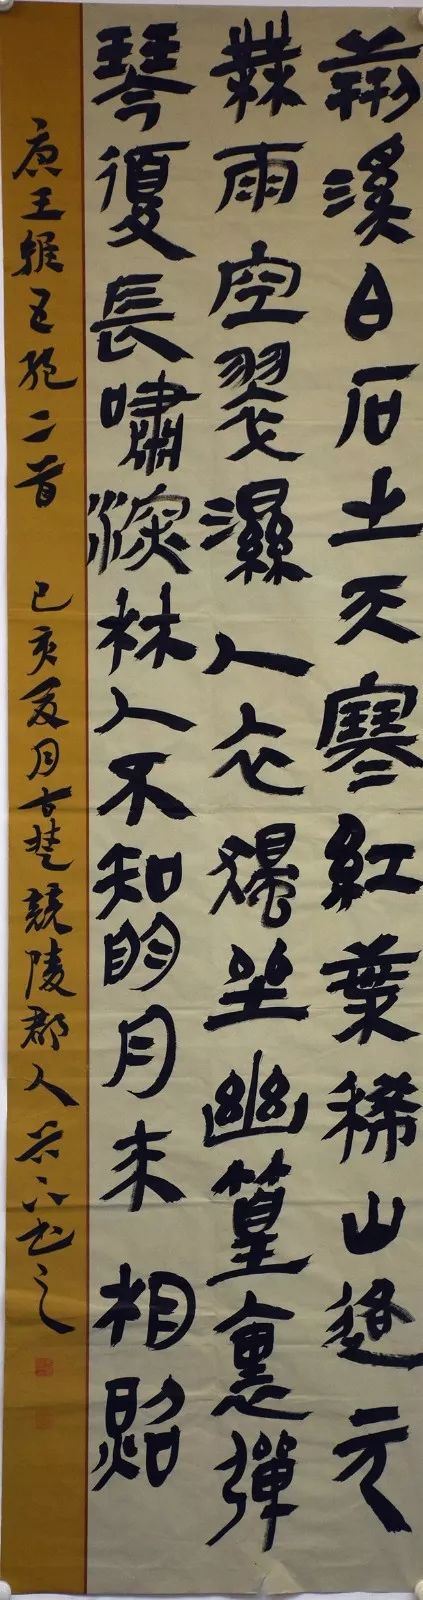 荊溪白石出天寒紅葉稀山路元
無雨空翠濕人衣獨坐幽篁裏彈
琴復長嘯深林人不知明月来相照
唐王維五絶二首 己亥夏月古楚競陵郡人书之